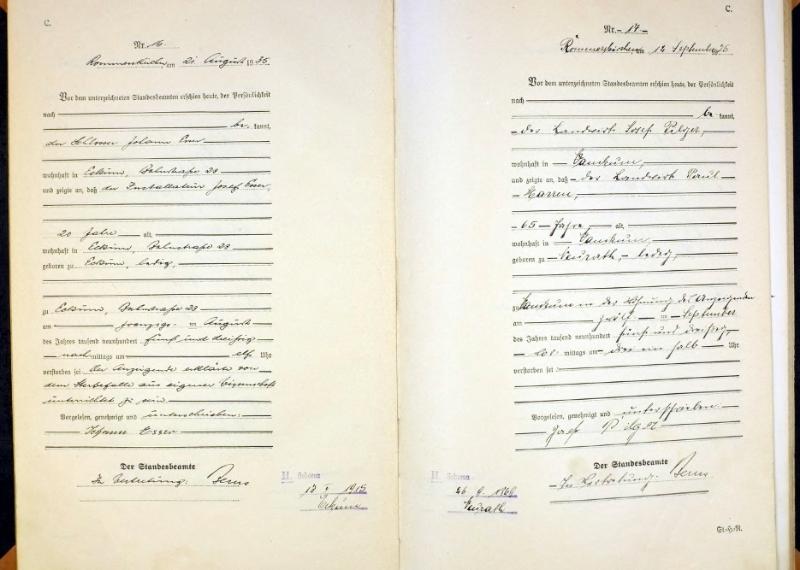 C.
Nr. 16.
Rommerskirchen, am 21 August 1935
Vor dem unterzeichneten Standesbeamten erschien heute, der Persönlichkeit
nach
be kannt,
der Johann Esser
wohnhaft in Eckum, Bahnstraße 28
und zeigte an, daß der Installatur Josef Esser,
20 Jahre alt,
wohnhaft in Eckum, Bahnstraße 28
geboren zu Eckum, ledig,
zu Eckum, Bahnstraße 28
am zwanzigs. ten August
des Jahres tausend neunhundert fünf und dreißig
nach mittags um elf Uhr
verstorben sei. Der Anzeigende erklärte von
dem Sterbefalle aus eigener Wissenschaft
unterrichtet zu sein
Vorgelesen, genehmigt und unterschrieben:
Johann Esser
Der Standesbeamte
In Vertretung:
H. Geboren
17 1915
Eckum
C.
Nr. 17
Rommerskirchen am 12 September 35
Vor dem unterzeichneten Standesbeamten erschien heute, der Persönlichkeit
nach
be kannt,
der Landwirt Josef Pilgt,
wohnhaft in
und zeigte an, daß der Landwirt Paul
Harren,
65 Jahre alt,
wohnhaft in
geboren zu Neurath, ledig,
zu in der Wohnung des Anzeigenden
am zwölf ten September
des Jahres tausend neunhundert fünf und dreißig,
vor mittags um drei ein halb Uhr
verstorben sei:
Vorgelesen, genehmigt und unterschrieben
Josef Pilgt
Der Standesbeamte
In Vertretung:
H. Geboren
26 9. 1869
Neurath
St.-H.-R.